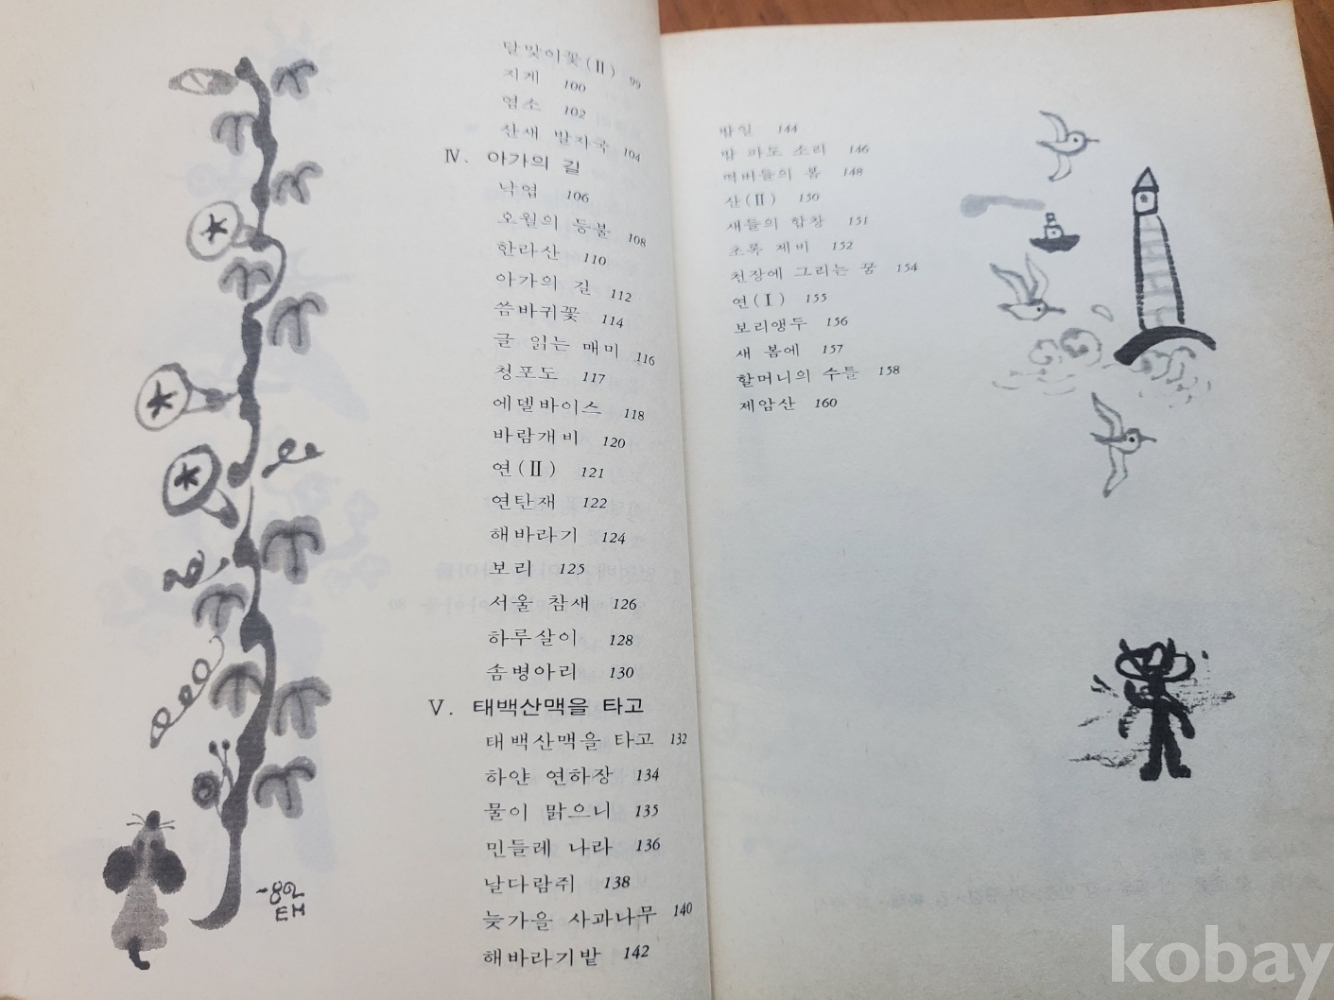 달맞이꽃(Ⅱ) 99
지게 100
염소 102
산새 발자국 104
Ⅳ. 아가의 길
낙엽 106
오월의 등불 108
한라산 110
아가의 길 112
씀바귀꽃 114
글 읽는 매미 116
청포도 117
에델바이스 118
바람개비 120
연(Ⅱ) 121
연탄재 122
해바라기 124
보리 125
서울 참새 126
하루살이 128
솜병아리 130
Ⅴ. 태백산맥을 타고
태백산맥을 타고 132
하얀 연하장 134
물이 맑으니 135
민들레 나라 136
날다람쥐 138
늦가을 사과나무 140
해바라기밭 142
밤일 144
밤 파도 소리 146
떡버들의 봄 148
산(Ⅱ) 150
새들의 합창 151
초록 제비 152
천장에 그리는 꿈 154
연(Ⅰ) 155
보리앵두 156
새 봄에 157
할머니의 수틀 158
제암산 160
kobay